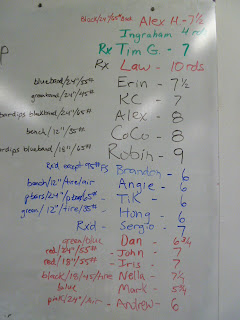 black/24"/55# Band Alex H. - 7½
Ingraham 4 rd
Rx Tim G. - 7
Rx Law - 10 rds
blueband/24"/55# Erin - 7½
greenband/24"/45# KC - 7
bardips blueband/24"/65# Alex - 8
bench/12"/35# CoCo - 8
bardips blueband/18"/65# Robin - 9
Rxd except 95# FS Brandon - 6
bench/12"/tire/air Angie - 6
pbars/24"/pbar65# - TiK - 6
green/12"/tire/35# - Hong - 6
Rxd - Sergio - 7
green/blue Dan - 6¾
red/24"/55# - John - 7
red/18"/55# - Iris - 7
black/18/45/tire Nella - 7¼
blue Mark - 5¾
pink/24"/Air - Andrew - 6